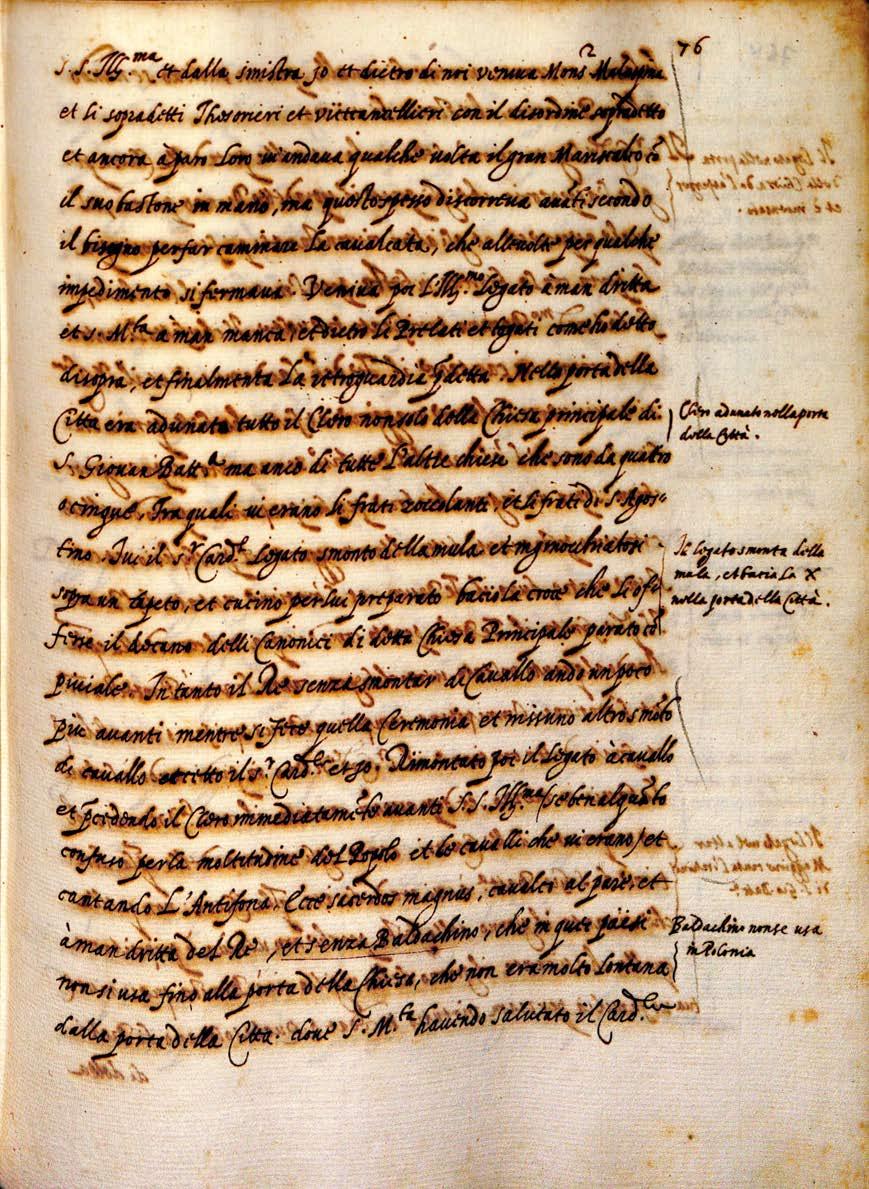 76
S. S. Ill.ma et dalla sinistra Jo et dietro di noi veniva Mons.r Malaspina
et li sopradetti Thesorieri et vicecancellieri con il disordine sopradetto
et ancora à paro loro vi andava qualche volta il gran Mariscalco cō
il suo bastone in mano, ma questo spesso discorreva avāti secondo
il bisogno per far caminare la cavalcata, che alle volte per qualche
impedimento si fermava. Veniva poi L'Ill.mo Legato à man dritta
et S. M.tà à man manca, et dietro li Prelati et legati come ho detto
di sopra, et finalmente La retroguardia p̄detta. Nella porta della
Città era adunato tutto il Clero non solo della Chiesa principale di
S. Giovan Batt.a ma anco di tutte l'altre chiese che sono da quatro
o cinque, Fra quali vi erano li frati zoccolanti, et li frati di S. Agos=
tino. Ivi il S.r Card.le Legato smontò della mula et inginocchiatosi
sopra un tapeto, et cucino per lui preparato baciò la croce che li of=
ferse il decano delli Canonici di detta Chiesa Principale parato cō
Piviale. In tanto il Re senza smontar di Cavallo andò un poco
più avanti mentre si fece quella Ceremonia et nissuno altro smōtò
di cavallo eccetto il S.r Card.le et Jo. Rimontato poi il Legato à cavallo
et p̄cedendo il Clero immediatamēte avanti S. S. Ill.ma (se ben alquāto
confuso per la moltitudine del Popolo et le cavalli che vi erano) et
cantando L'Antifona, Ecce sacerdos magnus, cavalcò al pare, et
à man dritta del Re, et senza Baldachino, che in quei paesi
non si usa fino alla porta della Chiesa, che non era molto lontana
dalla porta della Città. dove S. M.tà havendo salutato il Card.le
Clero adunato nella porta
della Città.
Il Legato smonta della
mula, et bacia la X
nella porta della Città.
Baldachino non se usa
in Polonia